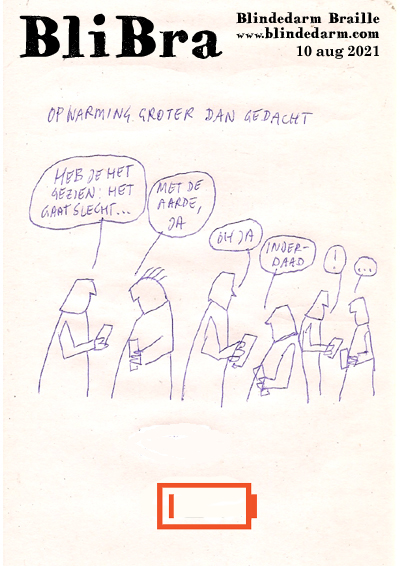 BliBra
Blindedarm Braille
www.blindedarm.com
10 aug 2021
OPWARMING GROTER DAN GEDACHT
HEB JE HET
GEZIEN: HET
GAAT SLECHT...
MET DE
AARDE,
JA
OH JA
INDER-
DAAD
!
...